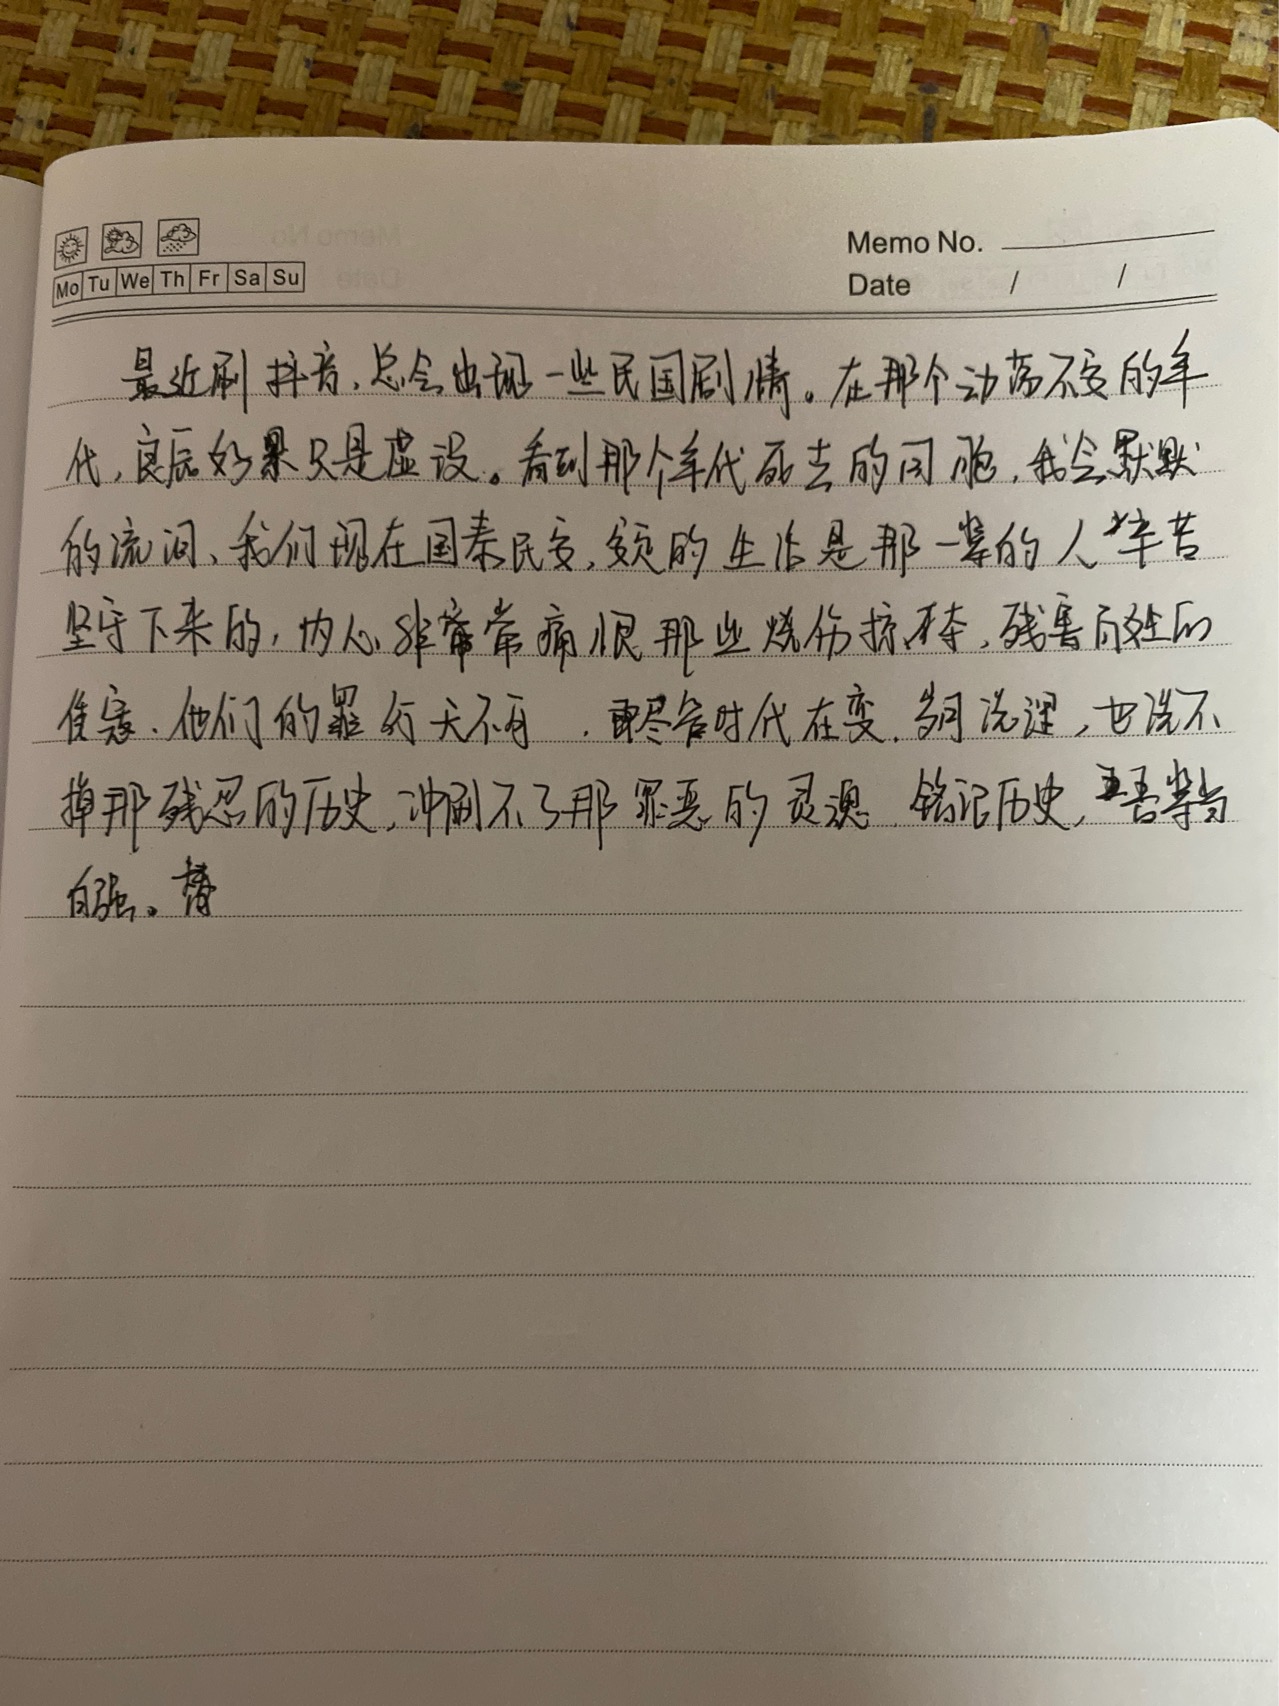 Memo No.
Mo Tu We Th Fr Sa Su
Date / /
最近刷抖音,总会出现一些民国剧情。在那个动荡不安的年
代,良辰好景只是虚设。看到那个年代死去的同胞,我会默默
的流泪、我们现在国泰民安,安定的生活是那一辈的人辛苦
坚守下来的,内心非常常痛恨那些烧伤掠夺,残害百姓的
倭寇、他们的罪行天不可,尽管时代在变,岁月洗涩,也洗不
掉那残忍的历史,冲刷不了那罪恶的灵魂,铭记历史,吾辈当
自强。